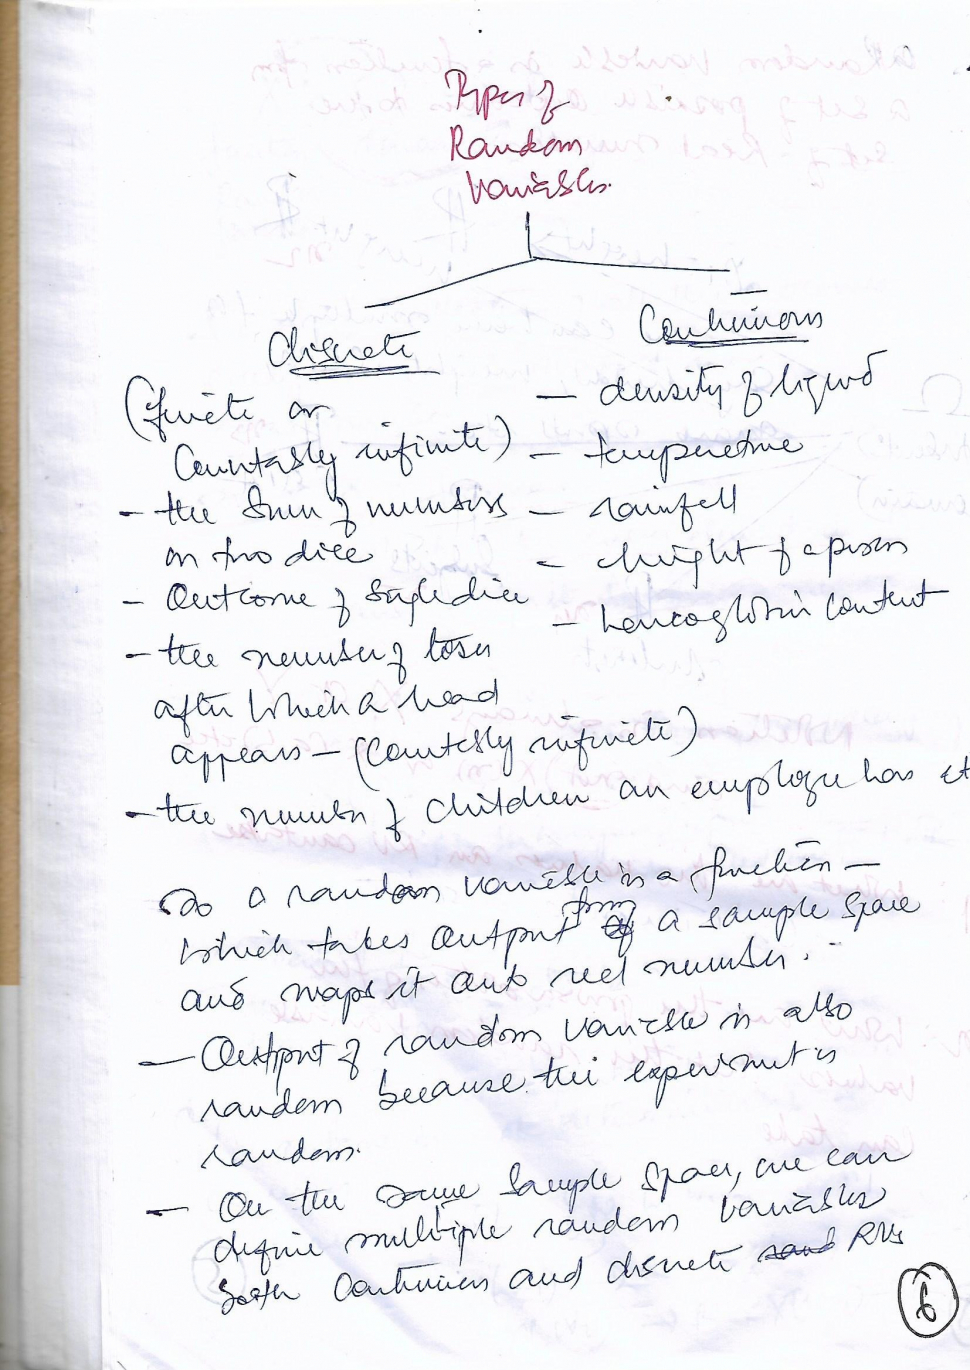 Types of
Random
Variables.
Discrete
(finite or
Countably infinite)
- the Sum of numbers
on two dice
- Outcome of Single dice
- the number of toses
after which a head
appears - (Countably infinite)
- the number of Children an employee has etc
Continuous
- density of liquid
- temperature
- rainfall
- height of a person
- hemoglobin content
So a random variable is a function -
which takes output from a sample space
and maps it onto real number.
- Output of random variable is also
random because the experiment is
random.
- On the same Sample Space, one can
define multiple random variables
both Continuous and discrete RVs
6